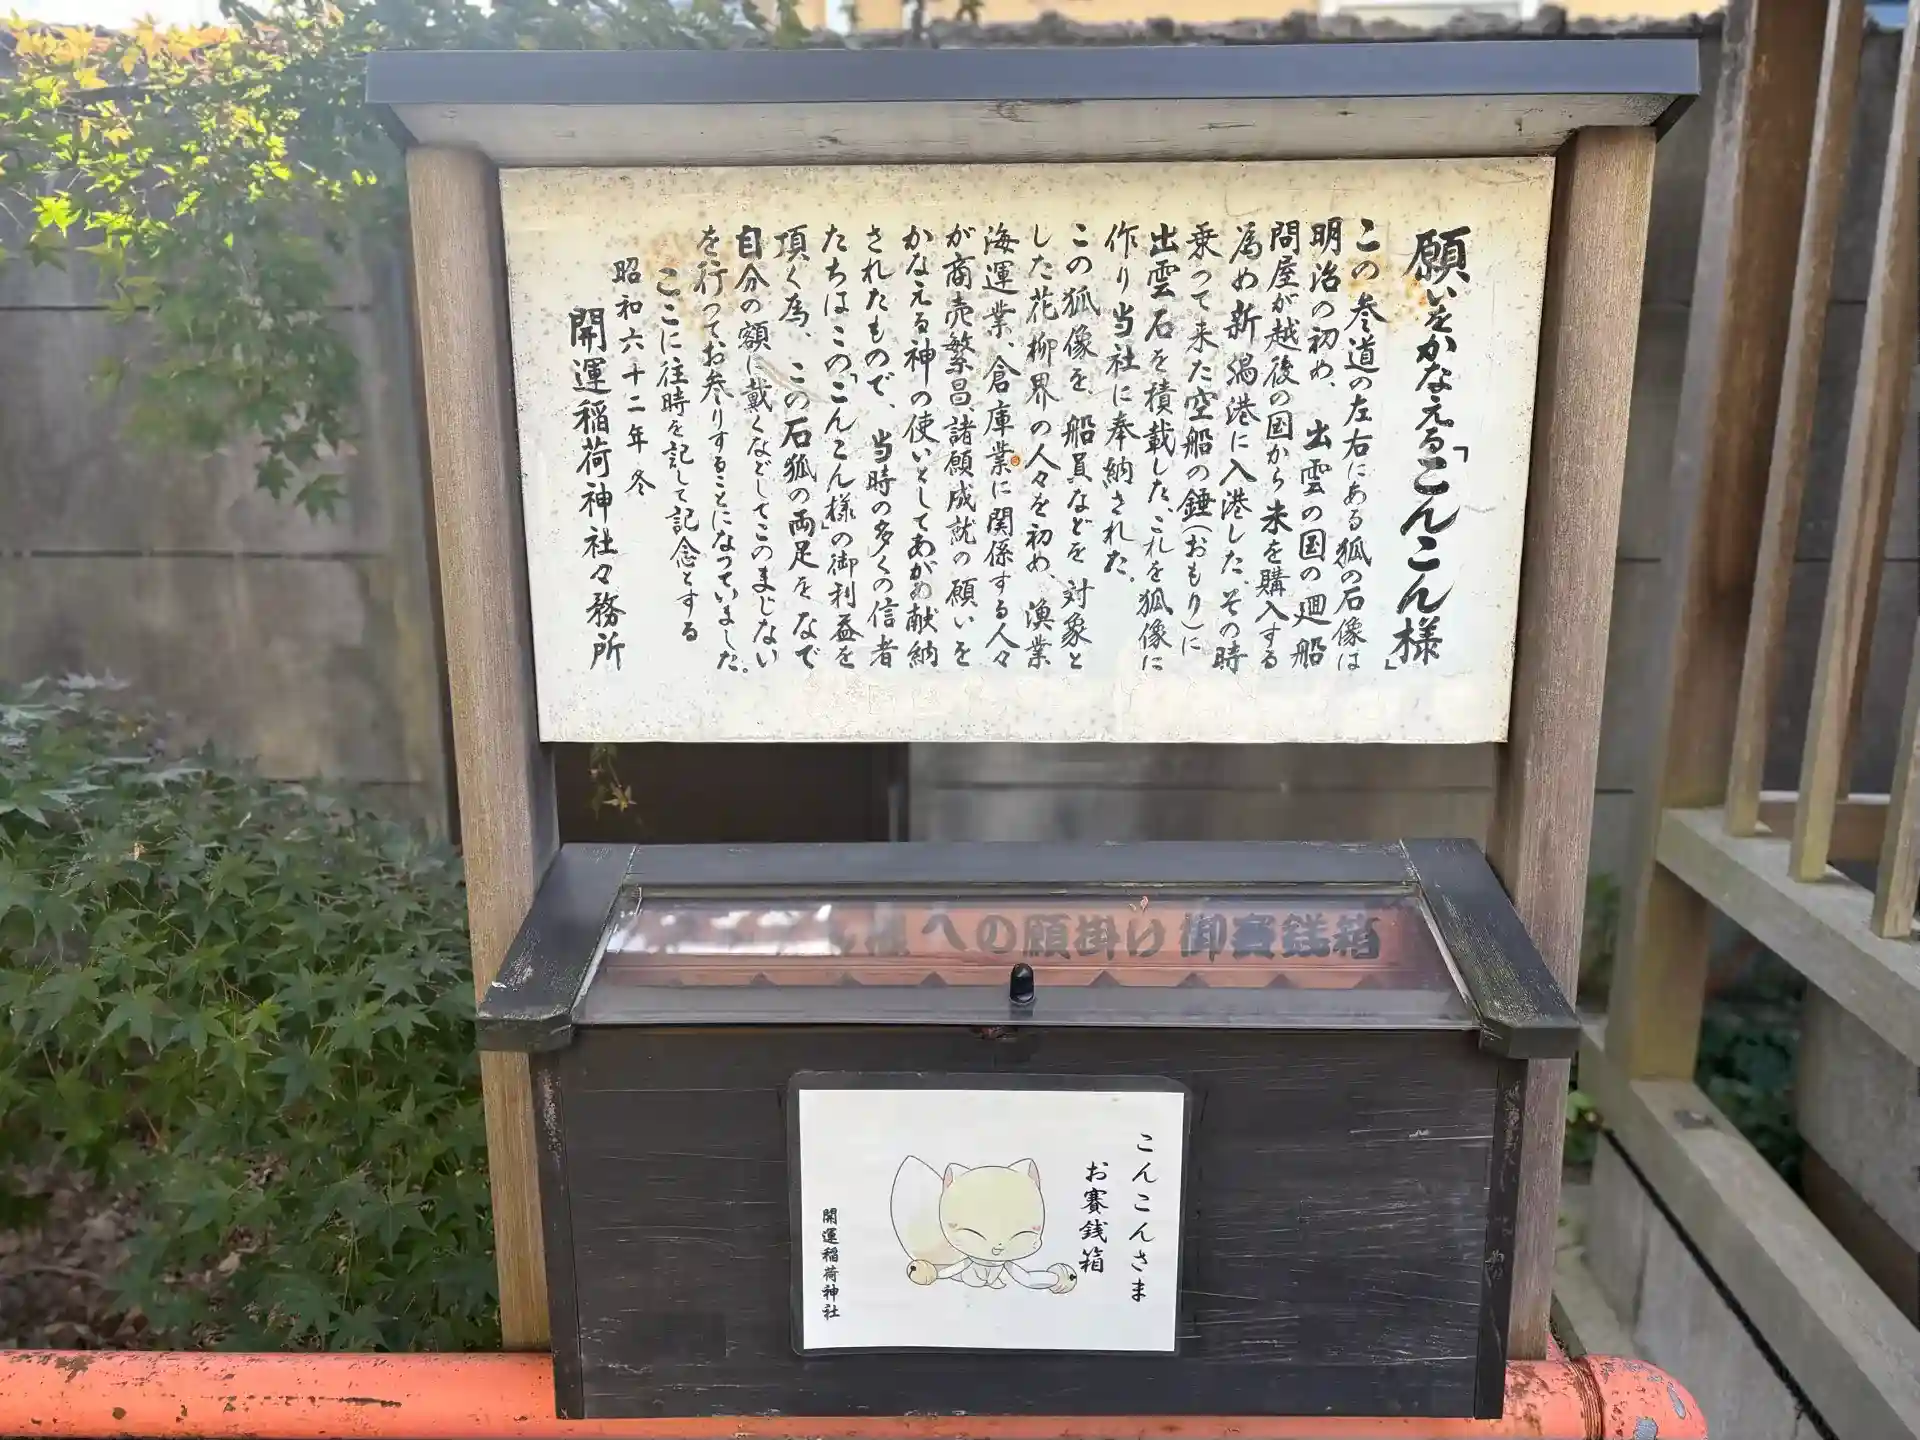 願いをかなえる「こんこん様」
この参道の左右にある狐の石像は
明治の初め、出雲の国の廻船
問屋が越後の国から米を購入する
為め新潟港に入港した。その時
乗って来た空船の錘(おもり)に
出雲石を積載した、これを狐像に
作り当社に奉納された。
この狐像を、船員などを対象と
した花柳界の人々を初め、漁業
海運業、倉庫業に関係する人々
が商売繁昌、諸願成就の願いを
かなえる神の使いとしてあがめ献納
されたもので、当時の多くの信者
たちはこの「こんこん様」の御利益を
頂く為、この石狐の両足をなで
自分の額に戴くなどしてこのまじない
を行ってお参りすることになっていました。
ここに往時を記して記念とする
昭和六十二年冬
開運稲荷神社々務所
への願掛け御賽銭箱
こんこんさま
お賽銭箱
開運稲荷神社